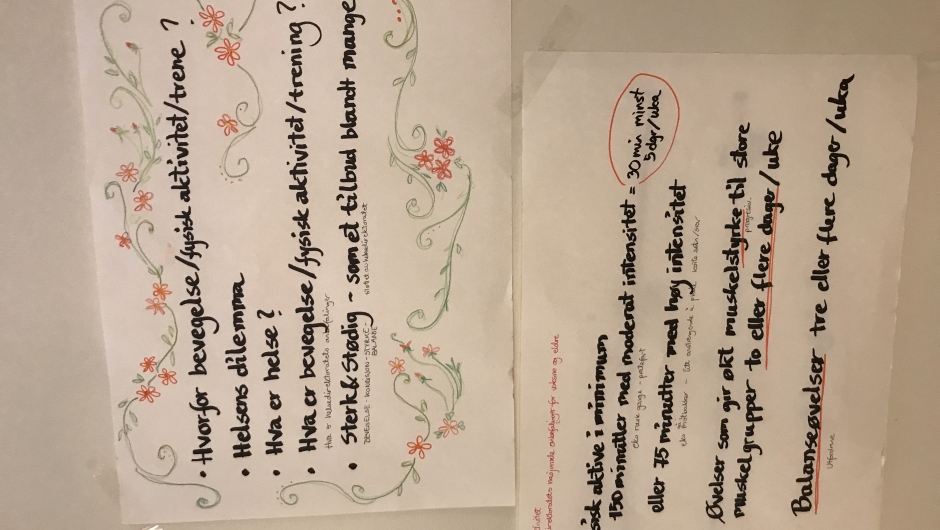 • Hvorfor bevegelse/fysisk aktivitet/trene?
• Helsens dilemma
• Hva er helse?
• Hva er bevegelse/fysisk aktivitet/trening?
Hva er helsedirektoratets anbefalinger
• Sterk&Stødig - som et tilbud blandt mange
BEVEGELSE - KONDISJON - STYRKE - BALANSE
nasjonale anbefalinger for voksne og eldre
aktive i minimum
150 minutter med moderat intensitet = 30 min minst
5 dgr/uka
eks rask gange
eller 75 minutter med høy intensitet
Øvelser som gir økt muskelstyrke til store
progresjon
muskelgrupper to eller flere dager/uke
Balanseøvelser tre eller flere dager/uka
Utfordrende